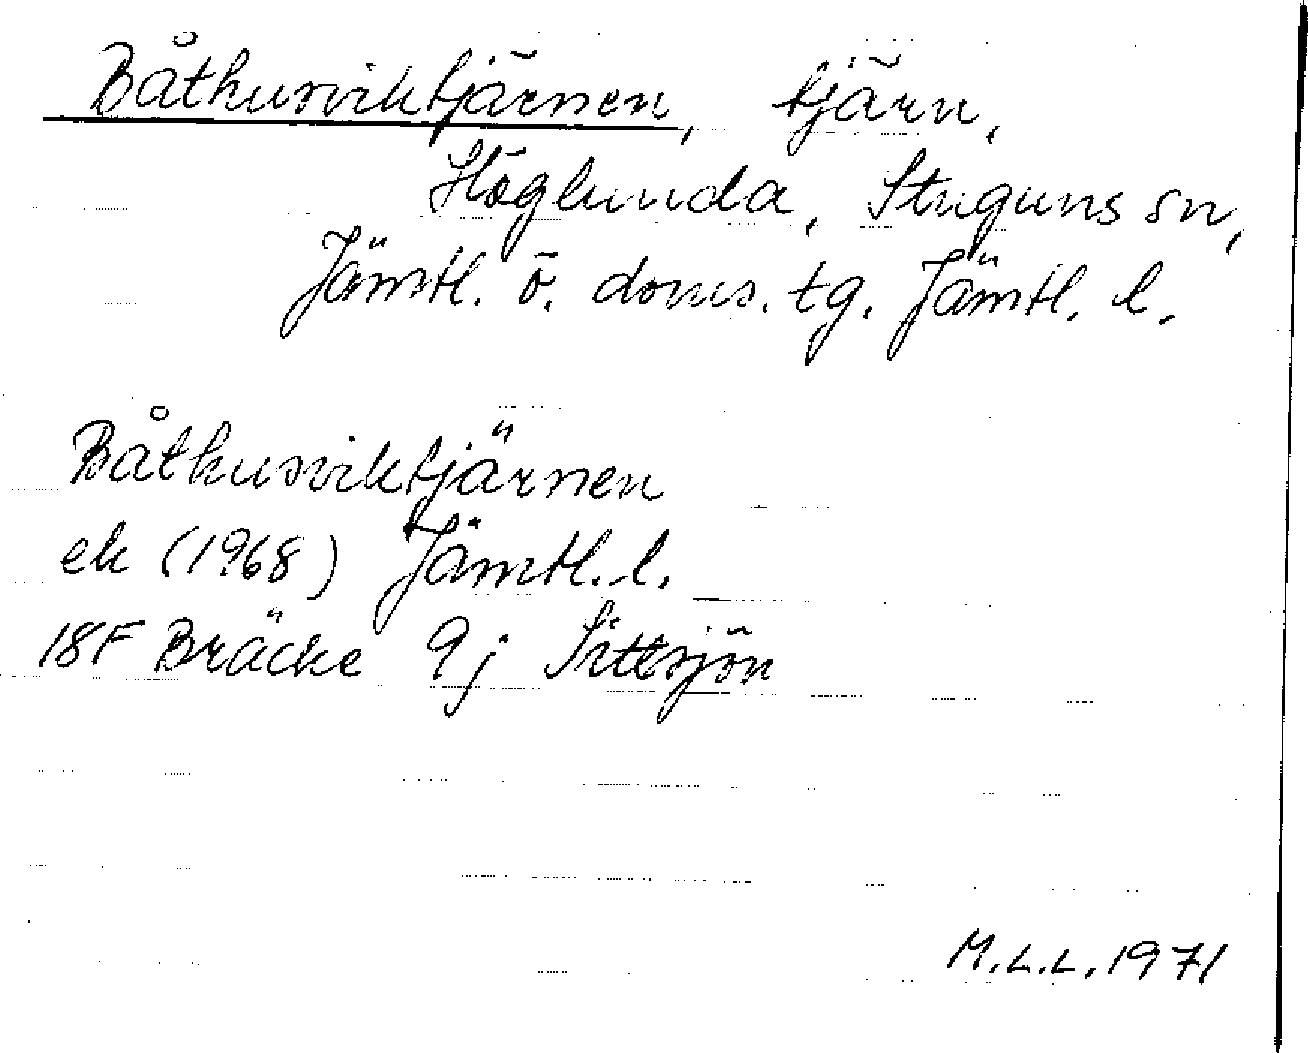 Båthusviktjärnen, tjärn,
Höglunda, Stuguns sn,
Jämtl. ö. doms. tg. Jämtl. l.
Båthusviktjärnen
ek (1968) Jämtl. l.
18F Bräcke 9j Sittsjön
M.L.L. 1971